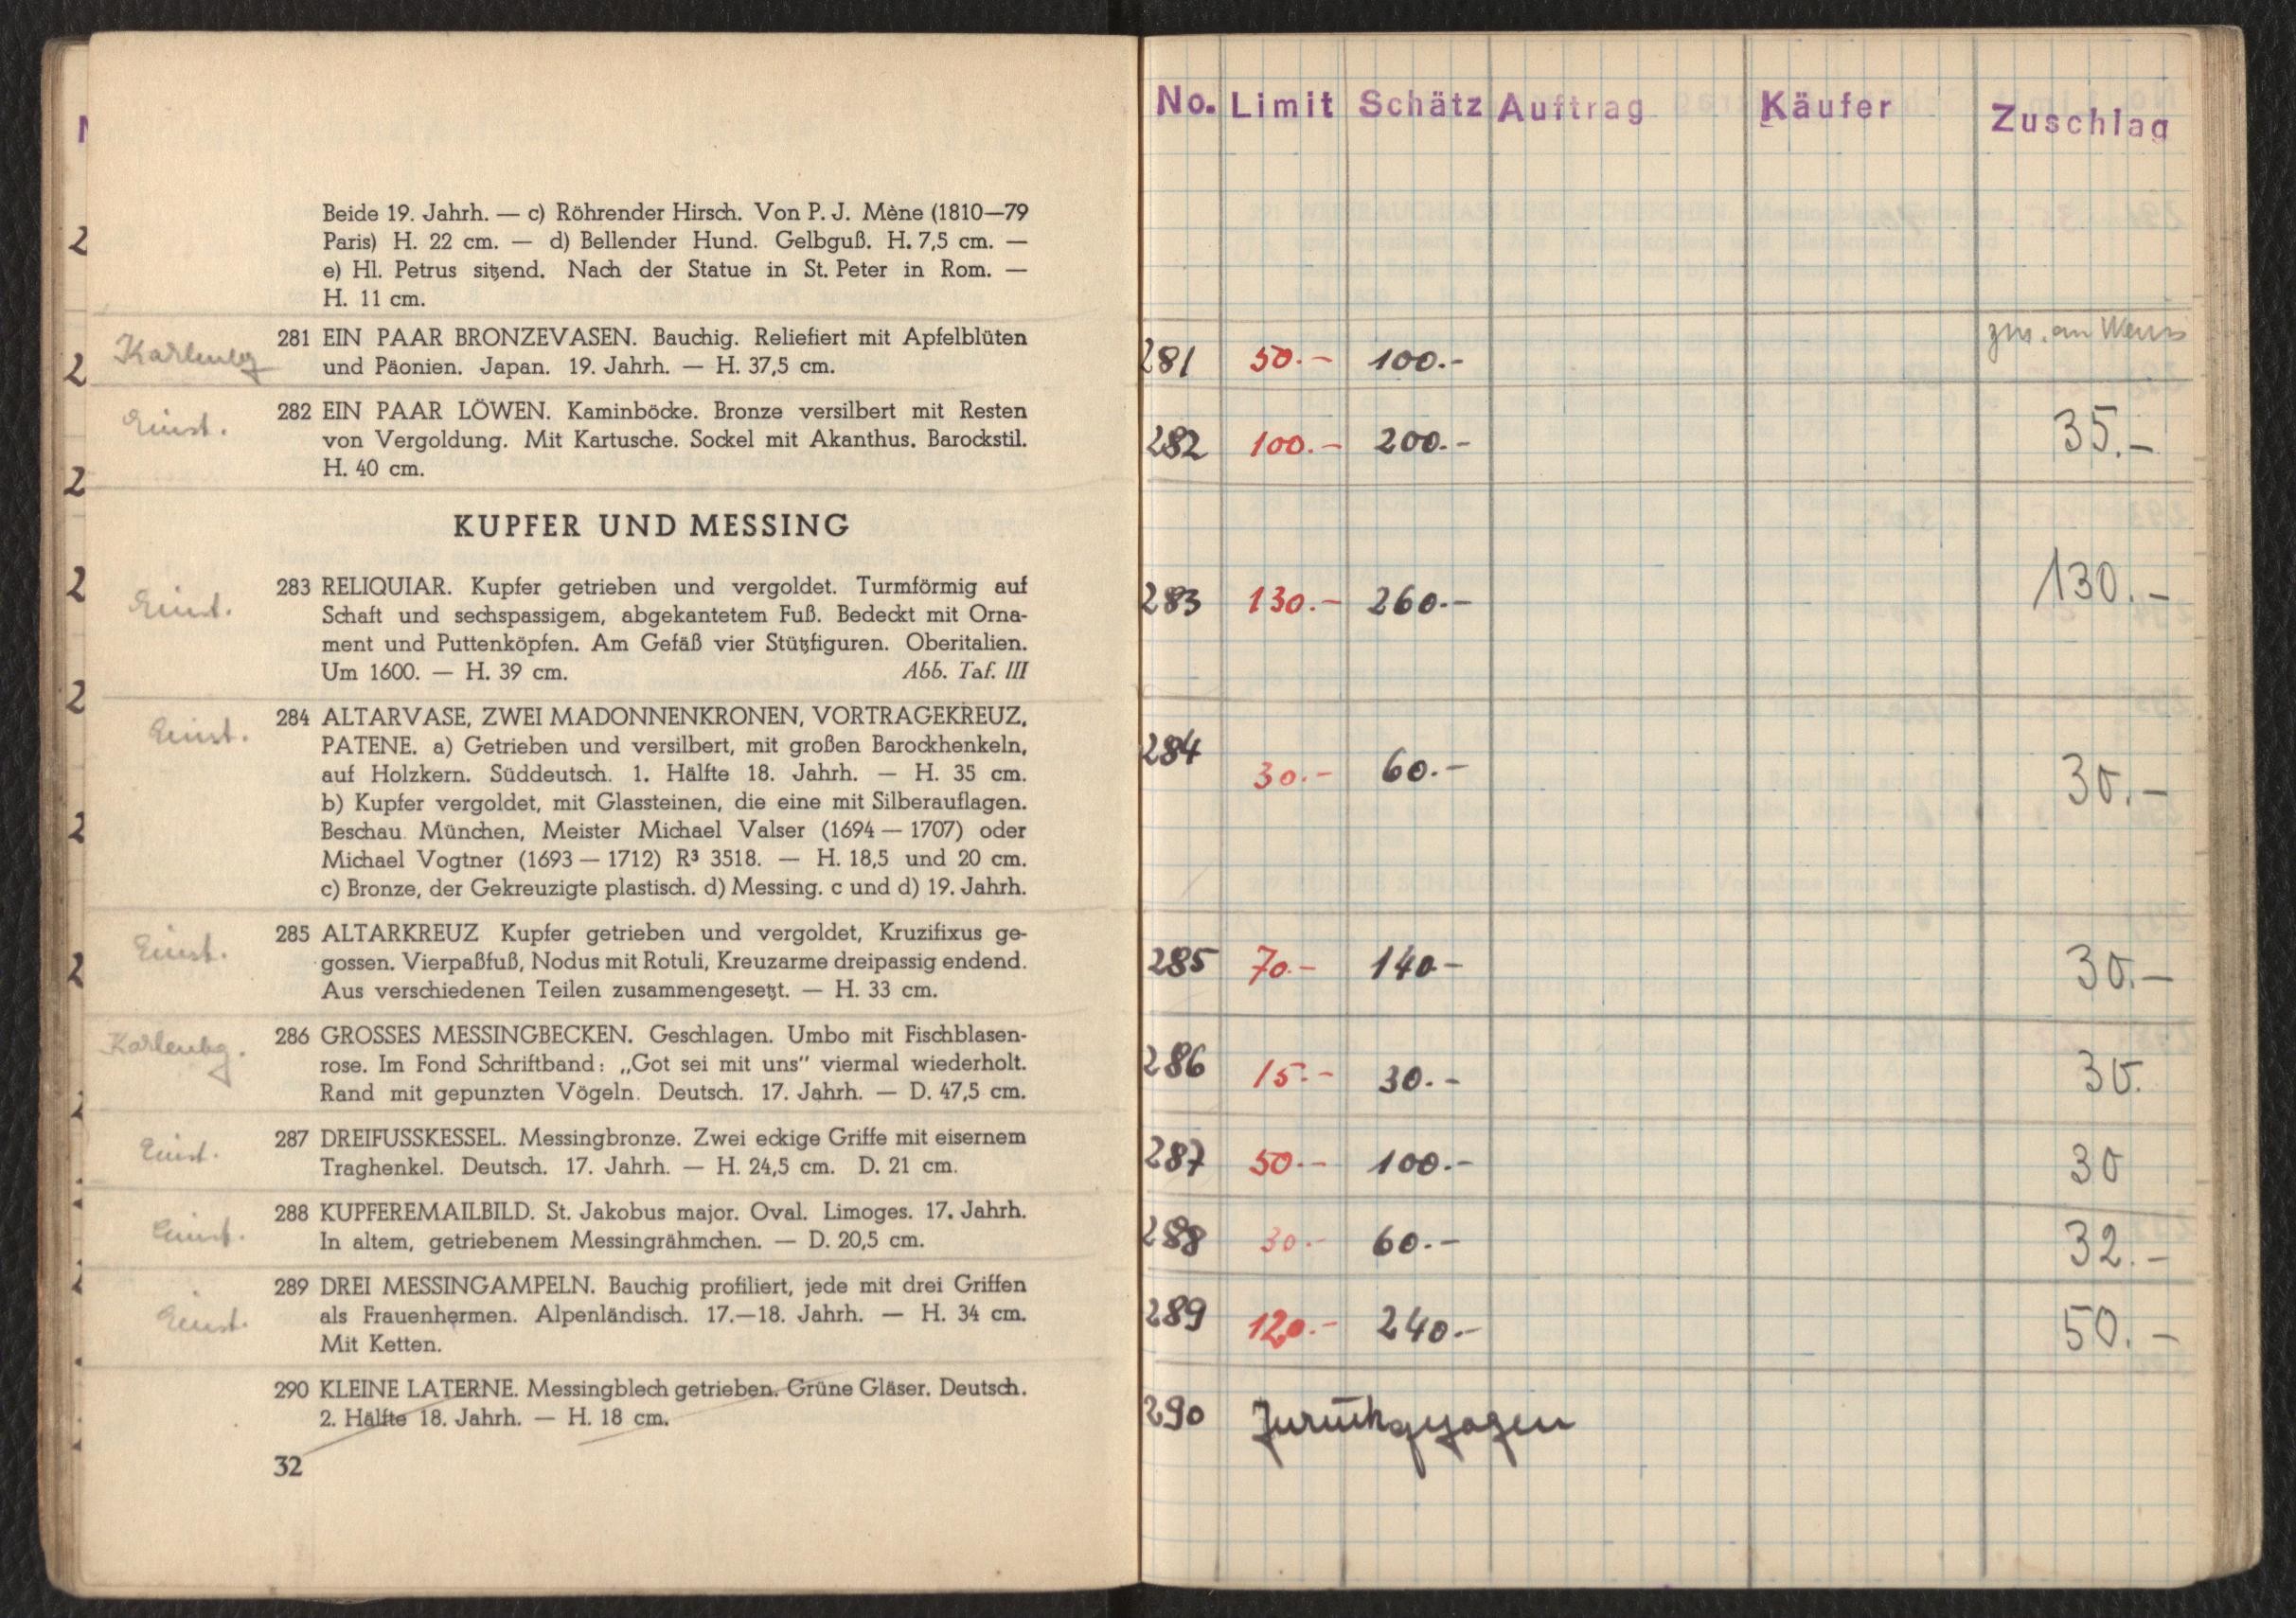 Beide 19. Jahrh. — c) Röhrender Hirsch. Von P. J. Mène (1810—79
Paris) H. 22 cm. — d) Bellender Hund. Gelbguß. H. 7,5 cm. —
e) Hl. Petrus sitzend. Nach der Statue in St. Peter in Rom. —
H. 11 cm.
281 EIN PAAR BRONZEVASEN. Bauchig. Reliefiert mit Apfelblüten
und Päonien. Japan. 19. Jahrh. — H. 37,5 cm.
282 EIN PAAR LÖWEN. Kaminböcke. Bronze versilbert mit Resten
von Vergoldung. Mit Kartusche. Sockel mit Akanthus. Barockstil.
H. 40 cm.
KUPFER UND MESSING
283 RELIQUIAR. Kupfer getrieben und vergoldet. Turmförmig auf
Schaft und sechspassigem, abgekantetem Fuß. Bedeckt mit Orna-
ment und Puttenköpfen. Am Gefäß vier Stützfiguren. Oberitalien.
Um 1600. — H. 39 cm. Abb. Taf. III
284 ALTARVASE, ZWEI MADONNENKRONEN, VORTRAGEKREUZ,
PATENE. a) Getrieben und versilbert, mit großen Barockhenkeln,
auf Holzkern. Süddeutsch. 1. Hälfte 18. Jahrh. — H. 35 cm.
b) Kupfer vergoldet, mit Glassteinen, die eine mit Silberauflagen.
Beschau München, Meister Michael Valser (1694 — 1707) oder
Michael Vogtner (1693 — 1712) R³ 3518. — H. 18,5 und 20 cm.
c) Bronze, der Gekreuzigte plastisch. d) Messing. c und d) 19. Jahrh.
285 ALTARKREUZ Kupfer getrieben und vergoldet, Kruzifixus ge-
gossen. Vierpaßfuß, Nodus mit Rotuli, Kreuzarme dreipassig endend.
Aus verschiedenen Teilen zusammengesetzt. — H. 33 cm.
286 GROSSES MESSINGBECKEN. Geschlagen. Umbo mit Fischblasen-
rose. Im Fond Schriftband: „Got sei mit uns" viermal wiederholt.
Rand mit gepunzten Vögeln. Deutsch. 17. Jahrh. — D. 47,5 cm.
287 DREIFUSSKESSEL. Messingbronze. Zwei eckige Griffe mit eisernem
Traghenkel. Deutsch. 17. Jahrh. — H. 24,5 cm. D. 21 cm.
288 KUPFEREMAILBILD. St. Jakobus major. Oval. Limoges. 17. Jahrh.
In altem, getriebenem Messingrähmchen. — D. 20,5 cm.
289 DREI MESSINGAMPELN. Bauchig profiliert, jede mit drei Griffen
als Frauenhermen. Alpenländisch. 17.—18. Jahrh. — H. 34 cm.
Mit Ketten.
290 KLEINE LATERNE. Messingblech getrieben. Grüne Gläser. Deutsch.
2. Hälfte 18. Jahrh. — H. 18 cm.
32
No. Limit Schätz Auftrag Käufer Zuschlag
281 50.- 100.-
282 100.- 200.- 35.-
283 130.- 260.- 130.-
284 30.- 60.- 30.-
285 70.- 140- 30.-
286 15.- 30.- 30.
287 50.- 100.- 30
288 30.- 60.- 32.-
289 120.- 240.- 50.-
290 Zurückgezogen